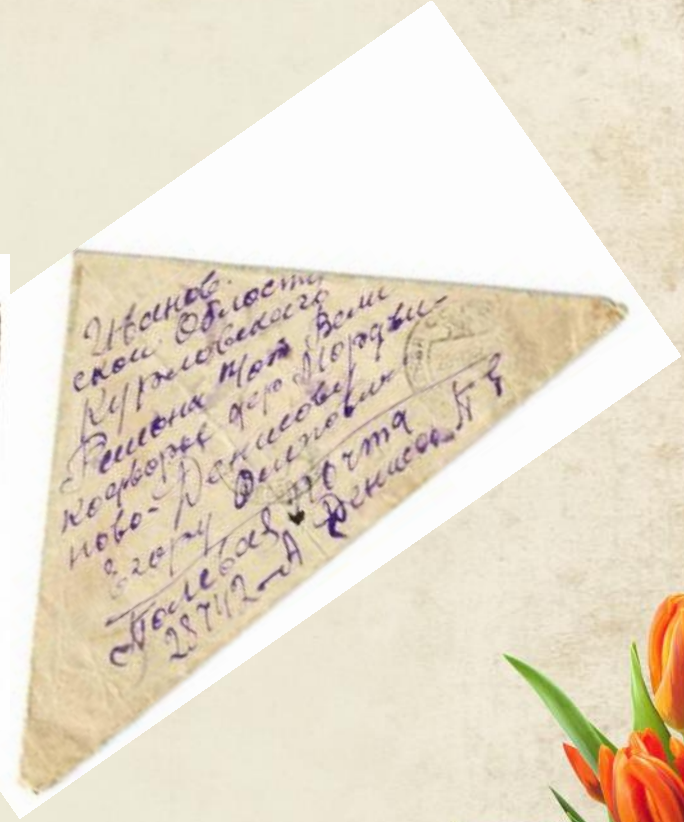 Иванов.
ской Области
Курловского
Района Поч. Вели
кодворье дер. Мордви-
ново-Денисову
Егору Филипович
Полевая почта
28742-А Денисов П Е